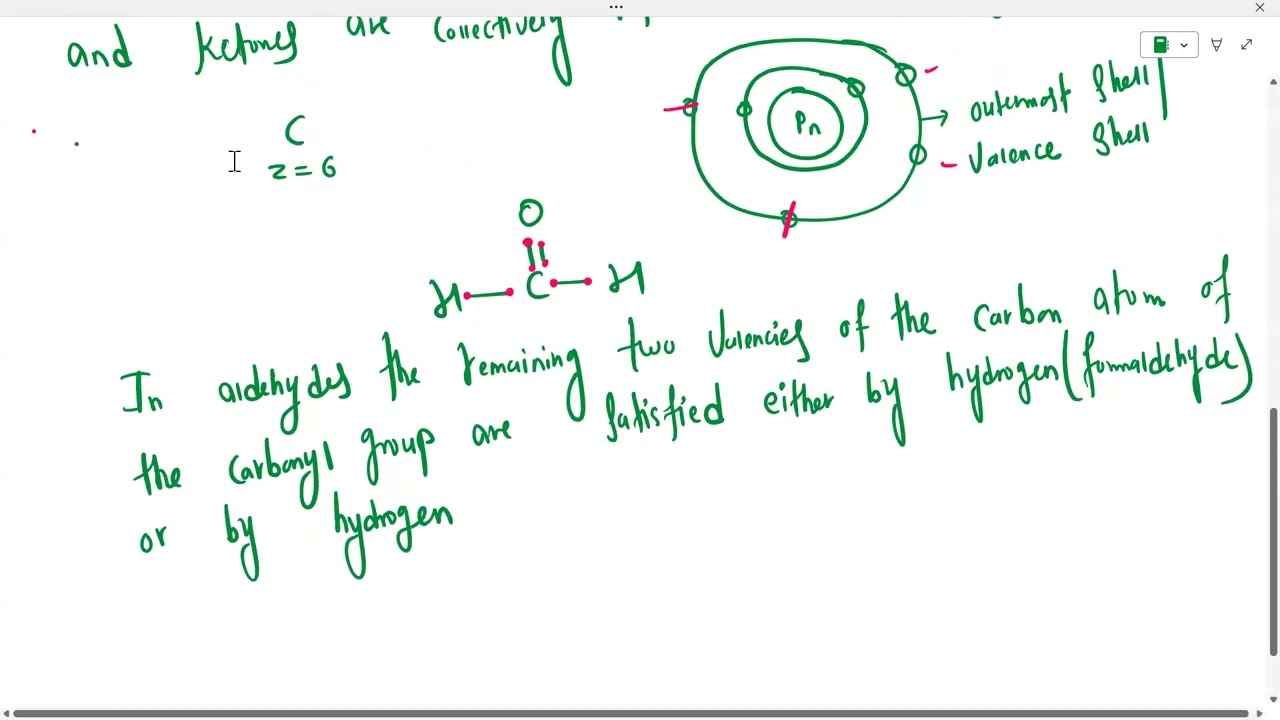 and ketones are collectively
C
z = 6
Pn
→ outermost shell
valence shell
O
H — C — H
In aldehydes the remaining two valencies of the carbon atom of
the carbonyl group are satisfied either by hydrogen (formaldehyde)
or by hydrogen